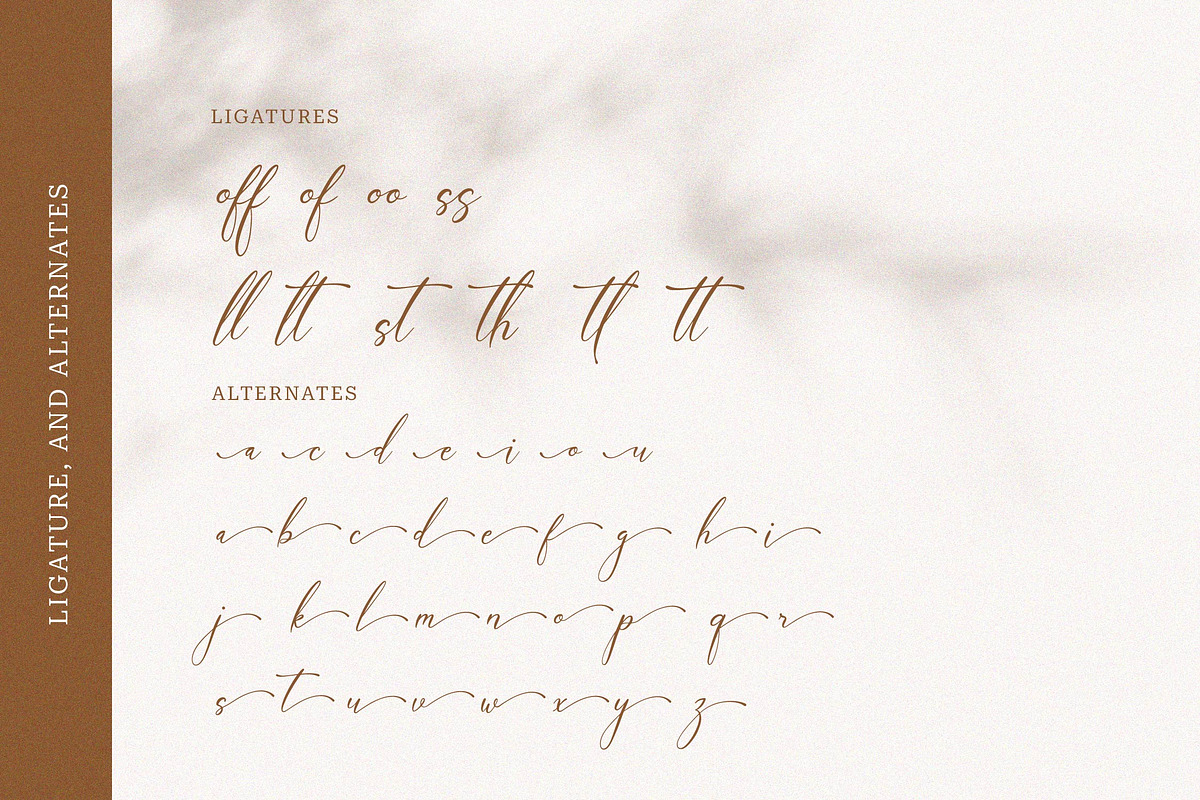 LIGATURE, AND ALTERNATES
LIGATURES
off of oo ss
ll tt st th tl tt
ALTERNATES
a c d e i o u
a b c d e f g h i
j k l m n o p q r
s t u v w x y z